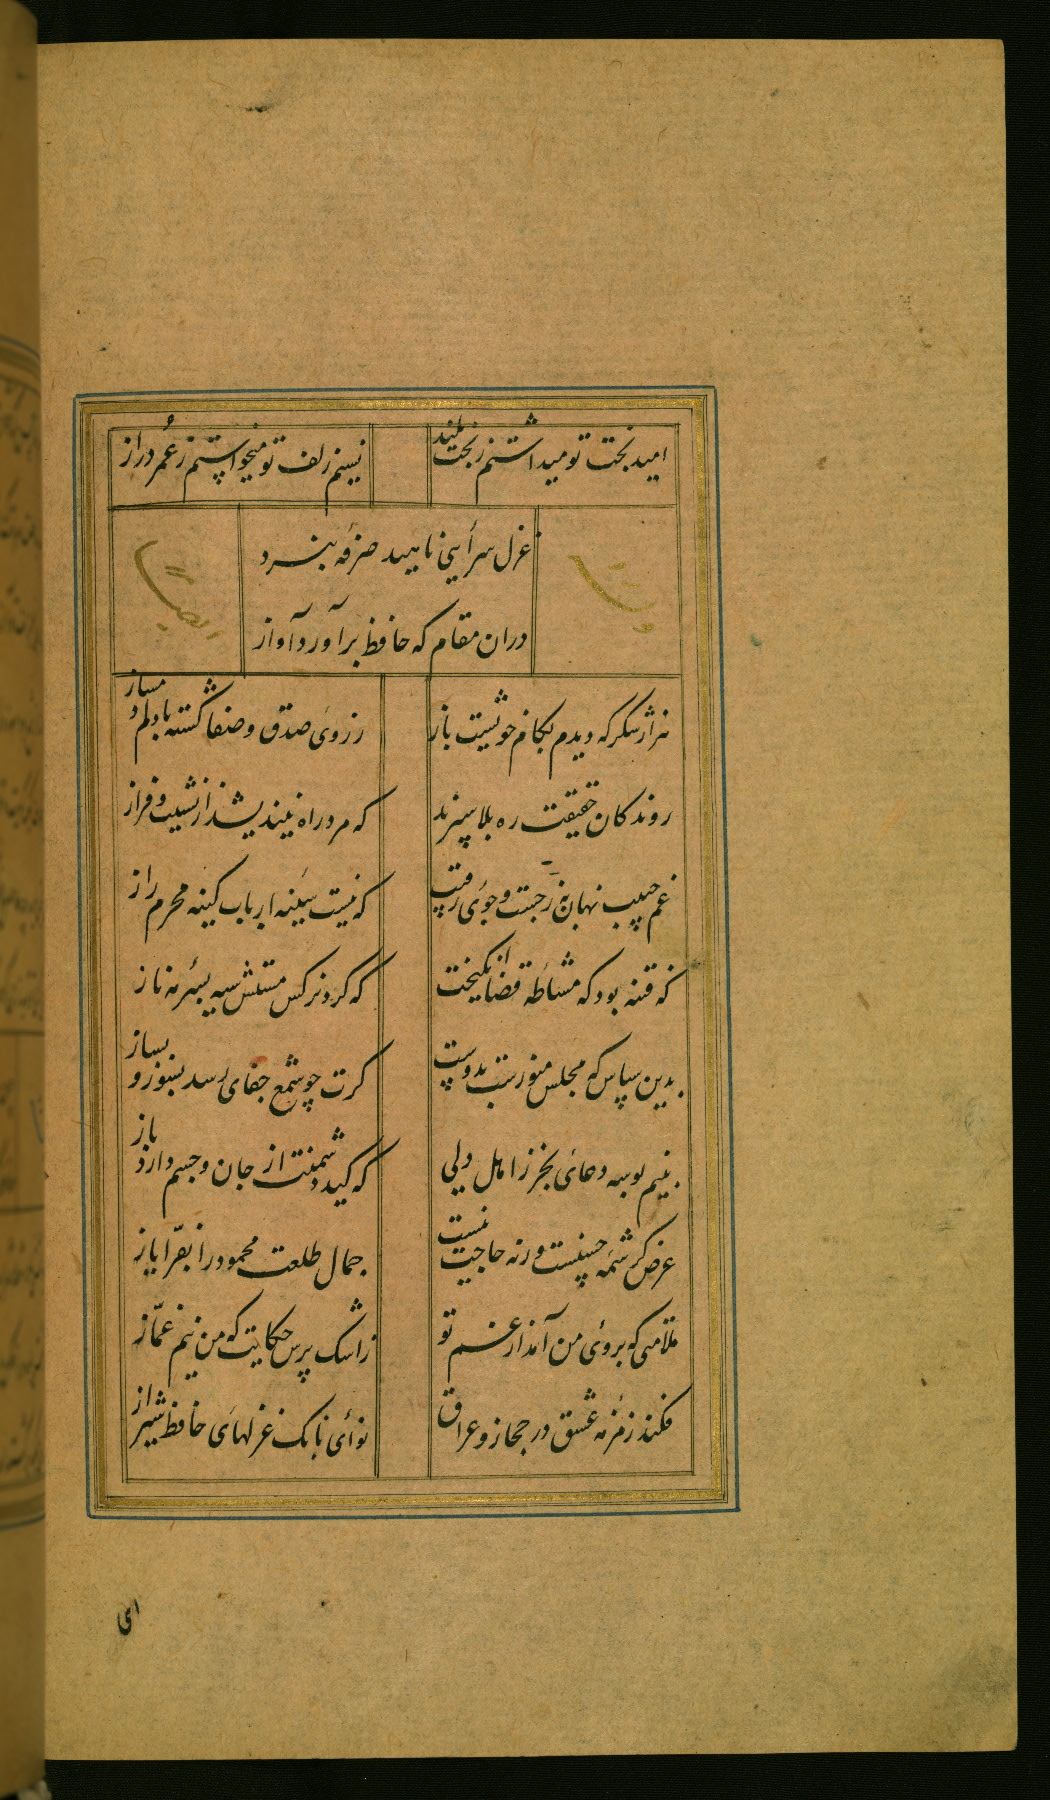 امید بخت تو میداشتم ز بخت بلند
نسیم زلف تو میخواستم ز عمر دراز
غزل سرایی ناهید صرفه نبرد
دران مقام که حافظ برآورد آواز
وله
ایضا
هزار شکر که دیدم بکام خویشت باز
ز روی صدق و صفا گشته با دلم دمساز
روندکان حقیقت ره بلا سپرند
که مرد راه نیندیشد از نشیب و فراز
غم حبیب نهان به ز جست و جوی رقیب
که نیست سینه ارباب کینه محرم راز
چه فتنه بود که مشاطه قضا انگیخت
که کرد نرکس مستش سیه بسرمه ناز
بدین سپاس که مجلس منورست بدوست
کرت چو شمع جفای رسد بسوز و بساز
به نیم بوسه دعای بخر ز اهل دلی
که کید دشمنت از جان و جسم دارد باز
غرض کرشمه حسنست ورنه حاجت نیست
جمال طلعت محمود را بفر ایاز
ملامتی که بروی من آمد از غم تو
ز اشک پرس حکایت که من نیم غماز
فکند زمزمه عشق در حجاز و عراق
نوای بانک غزلهای حافظ شیراز
ای